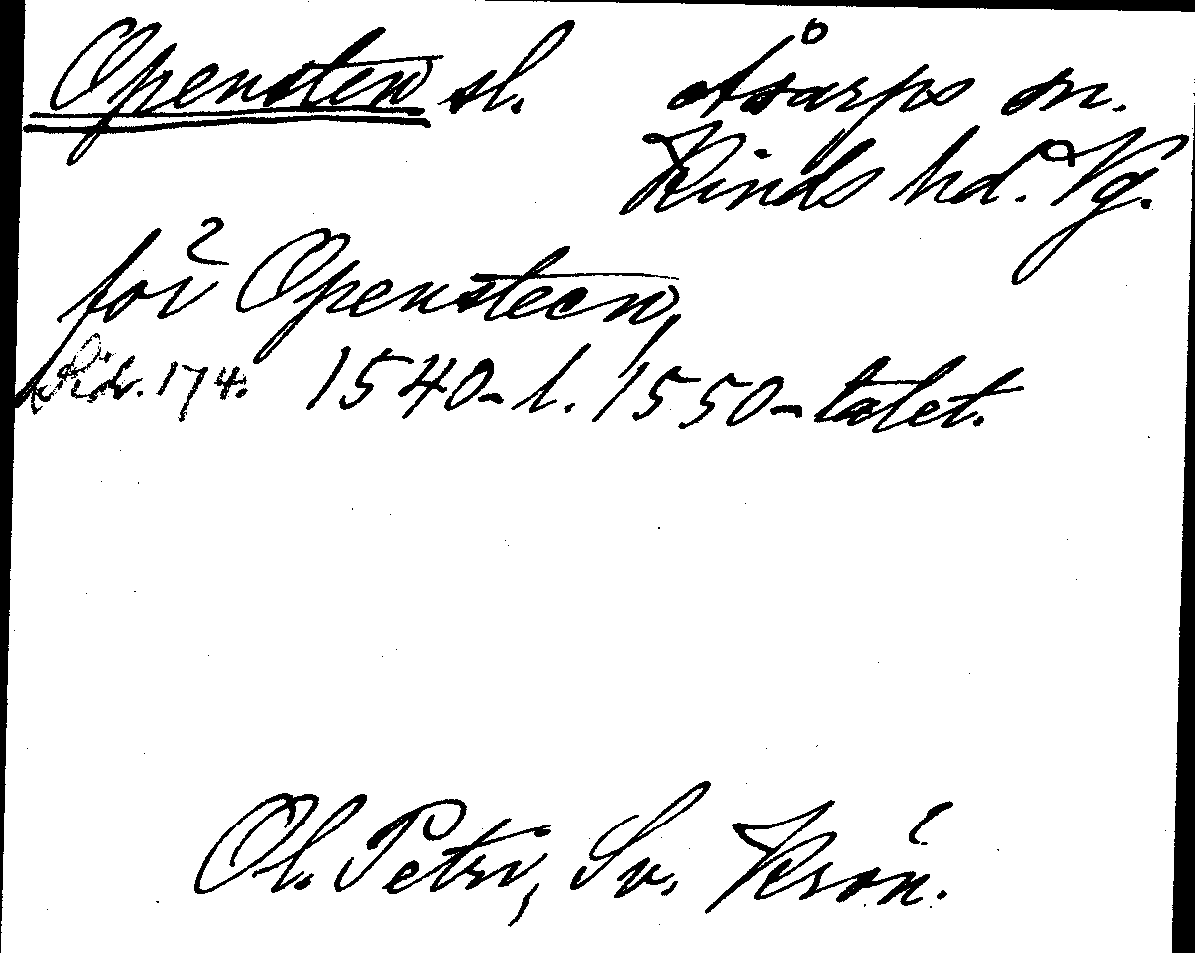 Opensten sl. Åsarps sn.
Kinds hd. Vg.
för Opensteen,
Sid. 174. 1540-l. 1550-talet.
Ol. Petri, Sv. Krön.